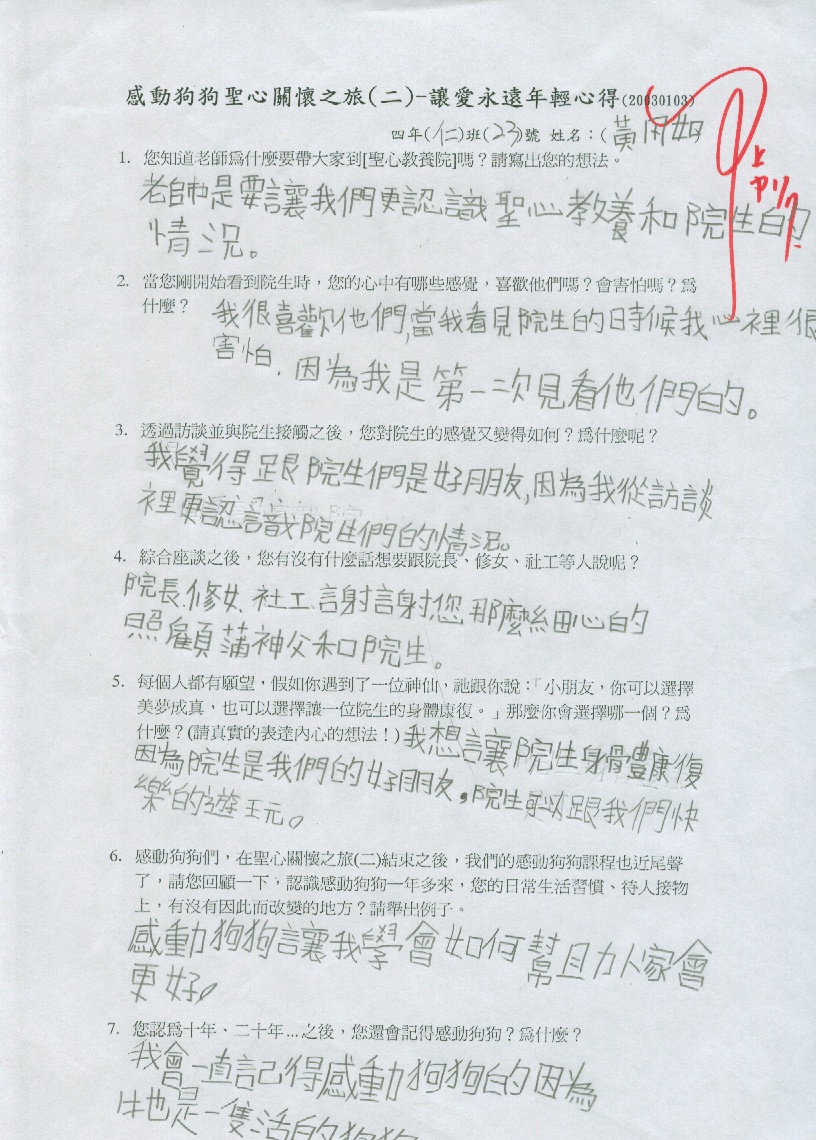 感動狗狗聖心關懷之旅(二)-讓愛永遠年輕心得(20030103)
四年(仁)班(23)號 姓名：(黃 如
上
1/7
1. 您知道老師爲什麼要帶大家到[聖心教養院]嗎？請寫出您的想法。
老師是要讓我們更認識聖心教養和院生的
情況。
2. 當您剛開始看到院生時，您的心中有哪些感覺，喜歡他們嗎？會害怕嗎？爲
什麼？ 我很喜歡他們,當我看見院生的時候我心裡很
害怕．因為我是第一次見看他們的。
3. 透過訪談並與院生接觸之後，您對院生的感覺又變得如何？爲什麼呢？
我覺得跟院生們是好朋友,因為我從訪談
裡更認識院生們的情況。
4. 綜合座談之後，您有沒有什麼話想要跟院長、修女、社工等人說呢？
院長、修女、社工、謝謝您那麼細心的
照顧蒲神父和院生。
5. 每個人都有願望，假如你遇到了一位神仙，祂跟你說：「小朋友，你可以選擇
美夢成真，也可以選擇讓一位院生的身體康復。」那麼你會選擇哪一個？爲
什麼？(請真實的表達內心的想法！)我想讓院生身體康復
因為院生是我們的好朋友，院生可以跟我們快
樂的遊玩。
6. 感動狗狗們，在聖心關懷之旅(二)結束之後，我們的感動狗狗課程也近尾聲
了，請您回顧一下，認識感動狗狗一年多來，您的日常生活習慣、待人接物
上，有沒有因此而改變的地方？請舉出例子。
感動狗狗讓我學會如何幫助人家會
更好。
7. 您認爲十年、二十年...之後，您還會記得感動狗狗？爲什麼？
我會一直記得感動狗狗的因為
牠也是一隻活的狗狗